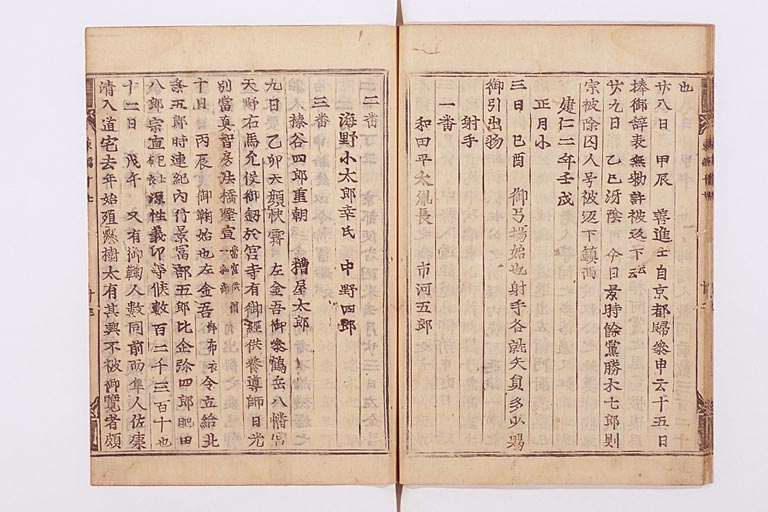 也
廿八日 甲辰 善進士自京都歸參申云十五日
捧御辞表無勅許被返下云云
廿九日 乙巳 陰 今日景時餘黨勝木七郎則
宗被除囚人号被返下鎮西
建仁二年壬戌
正月小
三日 己酉 御弓場始也射手各就矢員多少賜
御引出物
射手
一番
和田平太胤長 市河五郎
二番
海野小太郎幸氏 中野四郎
三番
榛谷四郎重朝 糟屋太郎
九日 乙卯 天顔快霽 左金吾御參鶴岳八幡宮
天野右馬允候御劔於宮寺有御經供養導師日光
別當真智房法橋隆宣
十日 丙辰 御鞠始也左金吾 布衣 令立給北
条五郎時連紀内行景冨部五郎比企弥四郎肥田
八郎宗直 源性義印等候數百二十三百十也
十二日 戊午 又有御鞠人數同前而隼人佐康
清入道宅去年始殖懸樹太有其興不被御覧者頗